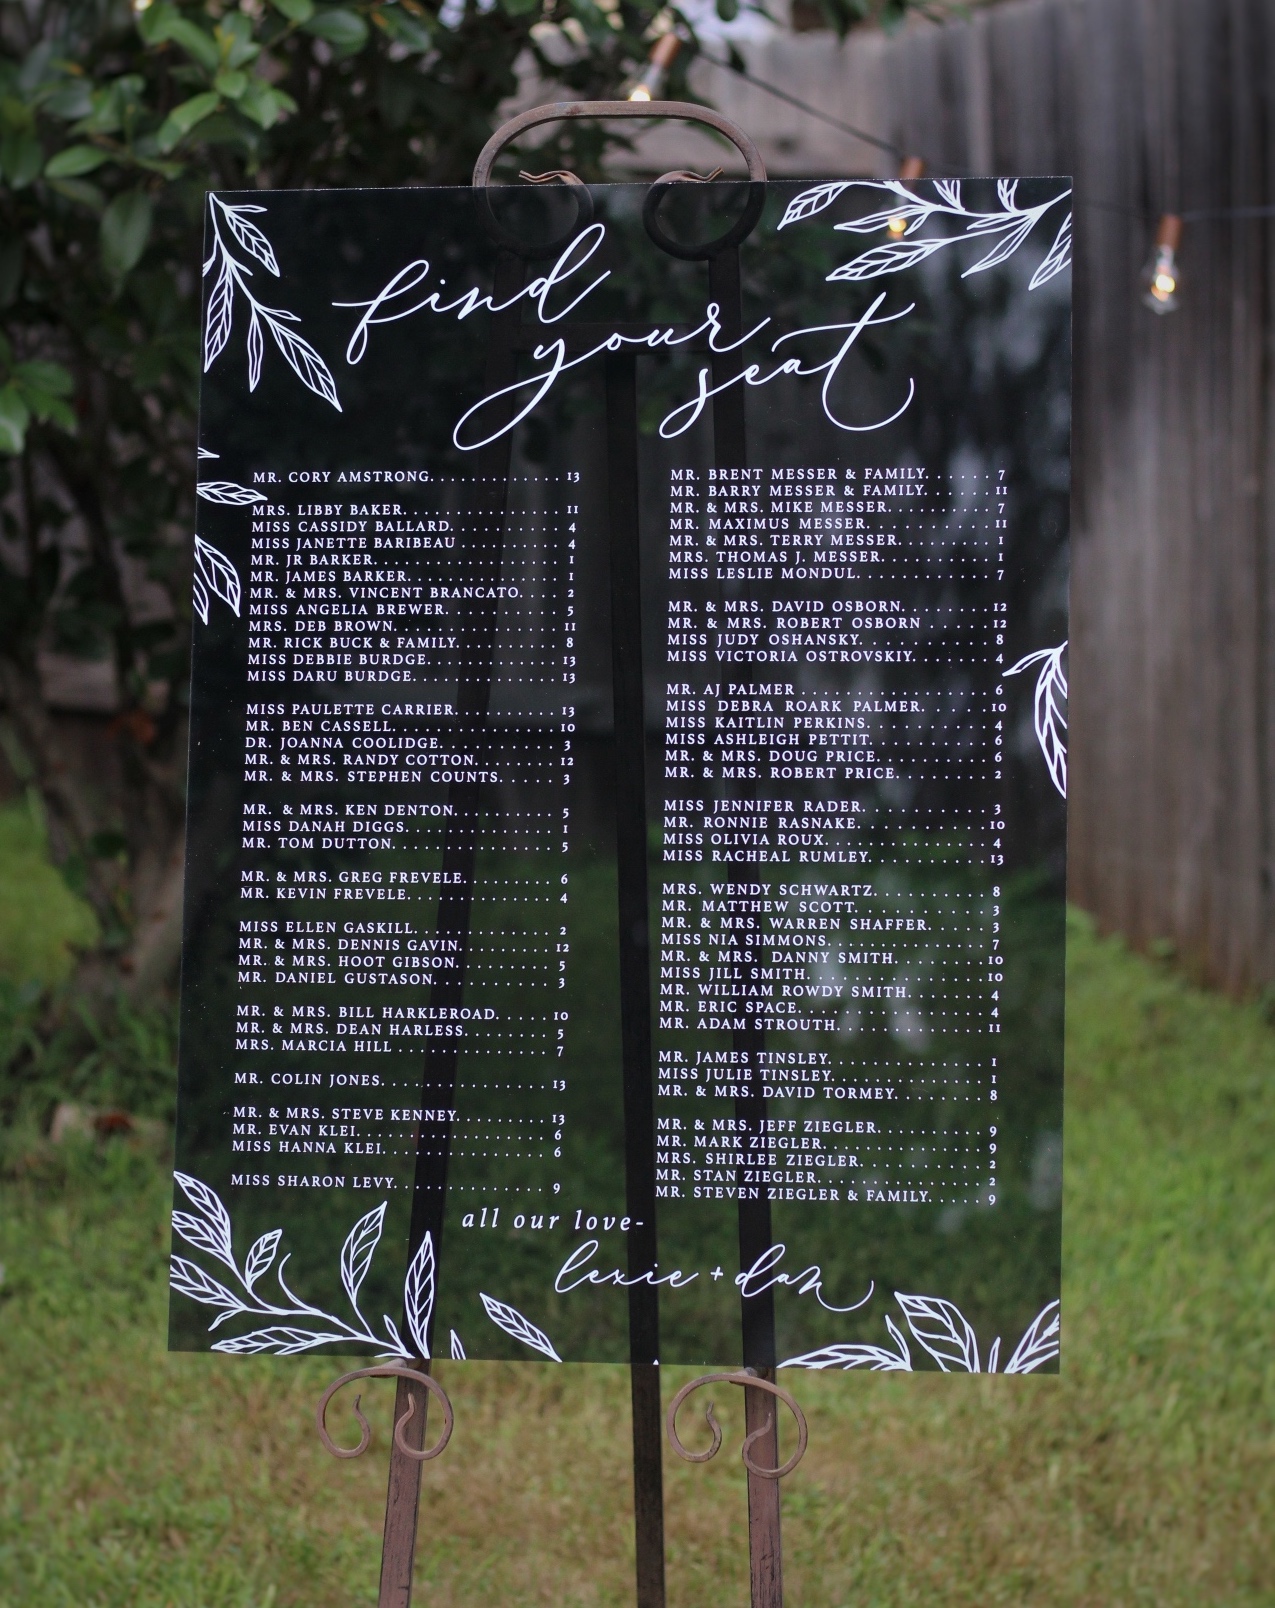 find
your
seat
MR. CORY AMSTRONG. . . . . . . . . . . . 13
MRS. LIBBY BAKER. . . . . . . . . . . . . . . 11
MISS CASSIDY BALLARD. . . . . . . . . . 4
MISS JANETTE BARIBEAU . . . . . . . . . 4
MR. JR BARKER. . . . . . . . . . . . . . . . . . 1
MR. JAMES BARKER. . . . . . . . . . . . . . 1
MR. & MRS. VINCENT BRANCATO. . . . 2
MISS ANGELIA BREWER. . . . . . . . . . . 5
MRS. DEB BROWN. . . . . . . . . . . . . . . 11
MR. RICK BUCK & FAMILY. . . . . . . . . . 8
MISS DEBBIE BURDGE. . . . . . . . . . . . 13
MISS DARU BURDGE. . . . . . . . . . . . . 13
MISS PAULETTE CARRIER. . . . . . . . . 13
MR. BEN CASSELL. . . . . . . . . . . . . . . 10
DR. JOANNA COOLIDGE. . . . . . . . . . . 3
MR. & MRS. RANDY COTTON. . . . . . . 12
MR. & MRS. STEPHEN COUNTS. . . . . . 3
MR. & MRS. KEN DENTON. . . . . . . . . 5
MISS DANAH DIGGS. . . . . . . . . . . . . . 1
MR. TOM DUTTON. . . . . . . . . . . . . . . 5
MR. & MRS. GREG FREVELE. . . . . . . . 6
MR. KEVIN FREVELE. . . . . . . . . . . . . 4
MISS ELLEN GASKILL. . . . . . . . . . . . . 2
MR. & MRS. DENNIS GAVIN. . . . . . . . 12
MR. & MRS. HOOT GIBSON. . . . . . . . . 5
MR. DANIEL GUSTASON. . . . . . . . . . . 3
MR. & MRS. BILL HARKLEROAD. . . . . 10
MR. & MRS. DEAN HARLESS. . . . . . . . 5
MRS. MARCIA HILL . . . . . . . . . . . . . . 7
MR. COLIN JONES. . . . . . . . . . . . . . . 13
MR. & MRS. STEVE KENNEY. . . . . . . . 13
MR. EVAN KLEI. . . . . . . . . . . . . . . . . . 6
MISS HANNA KLEI. . . . . . . . . . . . . . . 6
MISS SHARON LEVY. . . . . . . . . . . . . . 9
MR. BRENT MESSER & FAMILY. . . . . . 7
MR. BARRY MESSER & FAMILY. . . . . . 11
MR. & MRS. MIKE MESSER. . . . . . . . . 7
MR. MAXIMUS MESSER. . . . . . . . . . . 11
MR. & MRS. TERRY MESSER. . . . . . . . 1
MRS. THOMAS J. MESSER. . . . . . . . . . 1
MISS LESLIE MONDUL. . . . . . . . . . . . 7
MR. & MRS. DAVID OSBORN. . . . . . . . 12
MR. & MRS. ROBERT OSBORN . . . . . . 12
MISS JUDY OSHANSKY. . . . . . . . . . . . 8
MISS VICTORIA OSTROVSKIY. . . . . . . 4
MR. AJ PALMER . . . . . . . . . . . . . . . . . 6
MISS DEBRA ROARK PALMER. . . . . . 10
MISS KAITLIN PERKINS. . . . . . . . . . . 4
MISS ASHLEIGH PETTIT. . . . . . . . . . . 6
MR. & MRS. DOUG PRICE. . . . . . . . . . 6
MR. & MRS. ROBERT PRICE. . . . . . . . 2
MISS JENNIFER RADER. . . . . . . . . . . 3
MR. RONNIE RASNAKE. . . . . . . . . . . 10
MISS OLIVIA ROUX. . . . . . . . . . . . . . 4
MISS RACHEAL RUMLEY. . . . . . . . . . 13
MRS. WENDY SCHWARTZ. . . . . . . . . . 8
MR. MATTHEW SCOTT. . . . . . . . . . . . 3
MR. & MRS. WARREN SHAFFER. . . . . 3
MISS NIA SIMMONS. . . . . . . . . . . . . . 7
MR. & MRS. DANNY SMITH. . . . . . . . 10
MISS JILL SMITH. . . . . . . . . . . . . . . . 10
MR. WILLIAM ROWDY SMITH. . . . . . . 4
MR. ERIC SPACE. . . . . . . . . . . . . . . . . 4
MR. ADAM STROUTH. . . . . . . . . . . . . 11
MR. JAMES TINSLEY. . . . . . . . . . . . . . 1
MISS JULIE TINSLEY. . . . . . . . . . . . . . 1
MR. & MRS. DAVID TORMEY. . . . . . . . 8
MR. & MRS. JEFF ZIEGLER. . . . . . . . . 9
MR. MARK ZIEGLER. . . . . . . . . . . . . . 9
MRS. SHIRLEE ZIEGLER. . . . . . . . . . . 2
MR. STAN ZIEGLER. . . . . . . . . . . . . . 2
MR. STEVEN ZIEGLER & FAMILY. . . . . 9
all our love-
lexie + dan